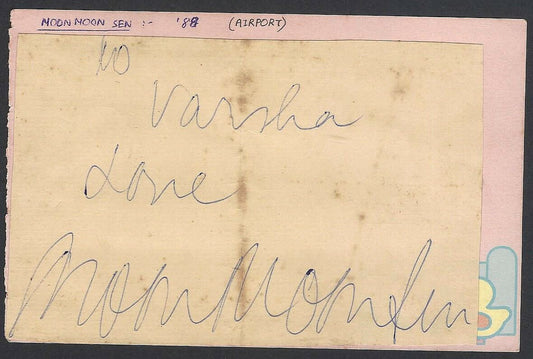 MOON MOON SEN :- '88 (AIRPORT)
To
Varsha
Love
Moon Moon Sen